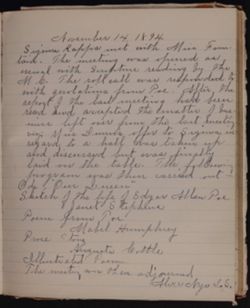 November 14, 1894
Sigma Kappa met with Miss
The meeting was opened as
usual with Scripture reading by the
M.C. The roll call was responded to
with quotations from Poe. After the
report of the last meeting had been
read and accepted the
left over from the last meet
ing. Miss offer to Sigma in
regard to a hall was taken up
and discussed but was finally
laid on the table. The following
program was then carried out
Sketch of the life of Edgar Allen Poe
Janet Stephens
Poem from Poe
Mabel Humphrey
Prose
Augusta Cottle
Illustrated Poem
The meeting was then adjourned